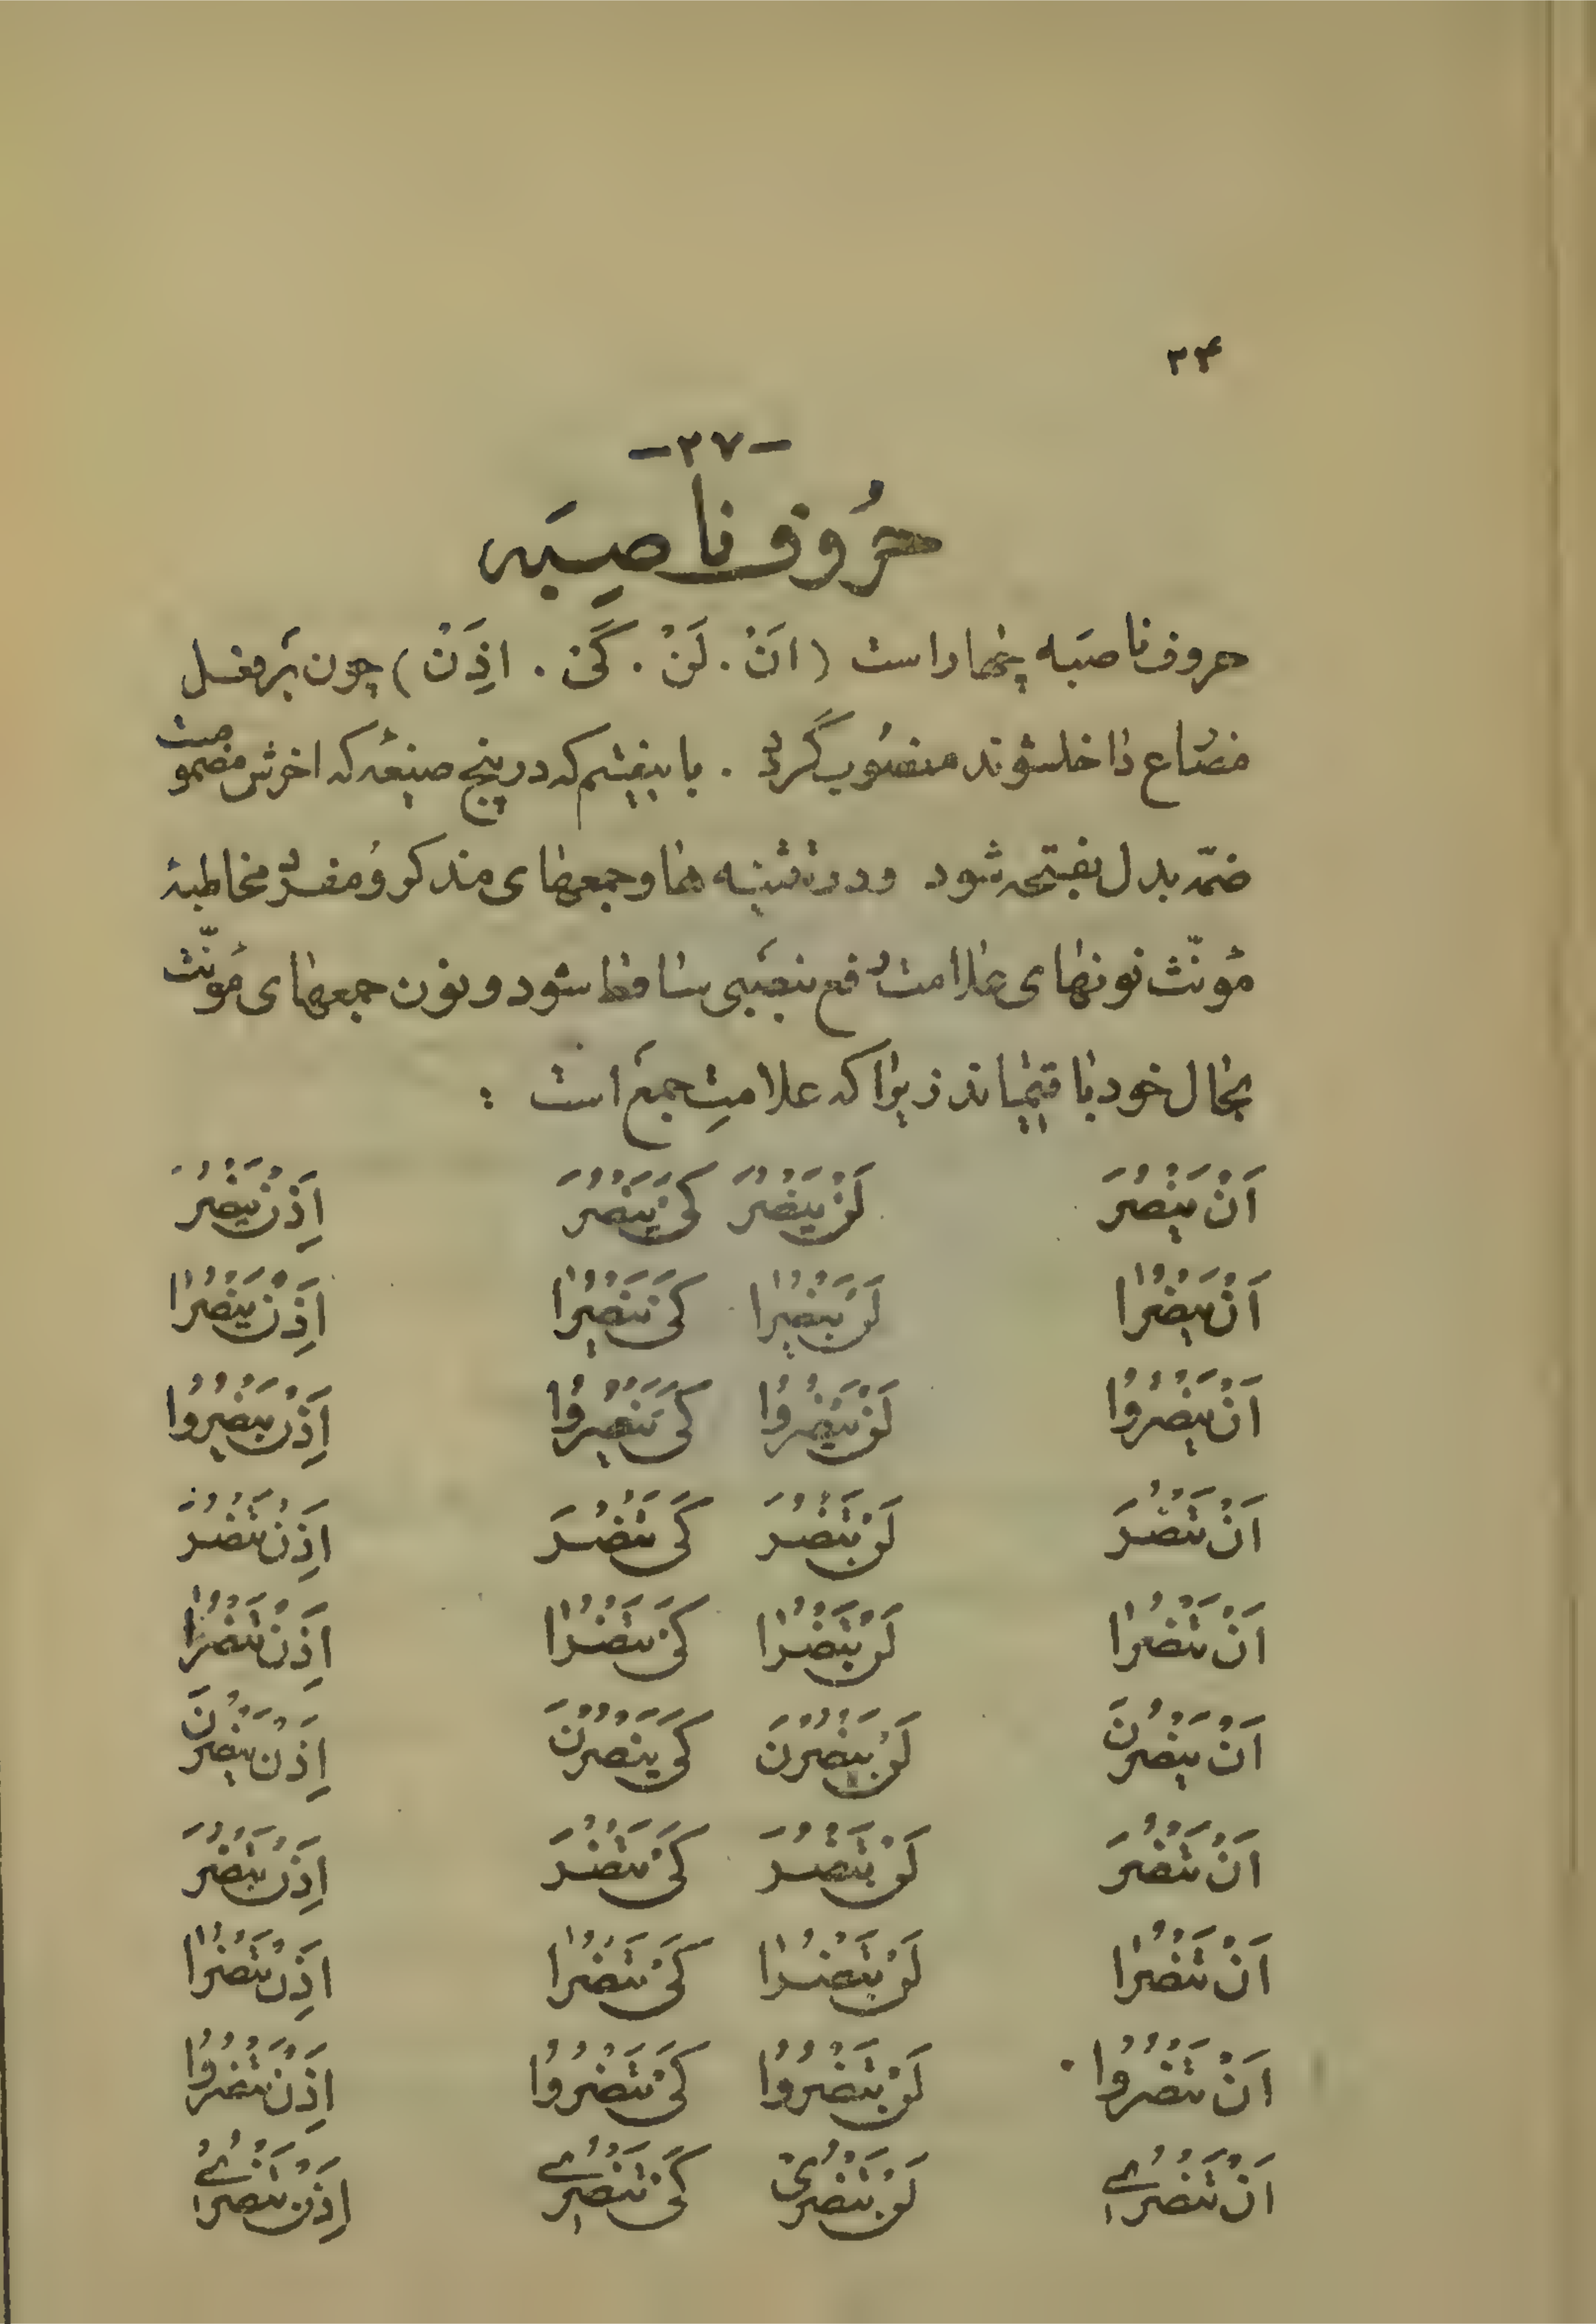 ۳۴
-۲۷-
حُرُوف ناصِبَه
حروف ناصبَه چهار است (اَنْ . لَنْ . کَیْ . اِذَنْ) چون بَر فعل
مضارع داخل شوند منصُوب گردد . باینقسم که در پنج صیغه که اخرش مضمومست
ضمّه بدل بفتحه شود و در تثنیه ها و جمعهای مذکر و مفرد مخاطبهٔ
مؤنّث نونهای علامت رفع بنصبی ساقط شود و نون جمعهای مؤنّث
بحال خود باقیماند زیرا که علامتِ جمع است :
اَنْ یَنْصُرَ لَنْ یَنْصُرَ کَیْ یَنْصُرَ اِذَنْ یَنْصُرَ
اَنْ یَنْصُرٰا لَنْ یَنْصُرٰا کَیْ یَنْصُرٰا اِذَنْ یَنْصُرٰا
اَنْ یَنْصُرُوا لَنْ یَنْصُرُوا کَیْ یَنْصُرُوا اِذَنْ یَنْصُرُوا
اَنْ تَنْصُرَ لَنْ تَنْصُرَ کَیْ تَنْصُرَ اِذَنْ تَنْصُرَ
اَنْ تَنْصُرٰا لَنْ تَنْصُرٰا کَیْ تَنْصُرٰا اِذَنْ تَنْصُرٰا
اَنْ یَنْصُرْنَ لَنْ یَنْصُرْنَ کَیْ یَنْصُرْنَ اِذَنْ یَنْصُرْنَ
اَنْ تَنْصُرَ لَنْ تَنْصُرَ کَیْ تَنْصُرَ اِذَنْ تَنْصُرَ
اَنْ تَنْصُرٰا لَنْ تَنْصُرٰا کَیْ تَنْصُرٰا اِذَنْ تَنْصُرٰا
اَنْ تَنْصُرُوا لَنْ تَنْصُرُوا کَیْ تَنْصُرُوا اِذَنْ تَنْصُرُوا
اَنْ تَنْصُرِی لَنْ تَنْصُرِی کَیْ تَنْصُرِی اِذَنْ تَنْصُرِی